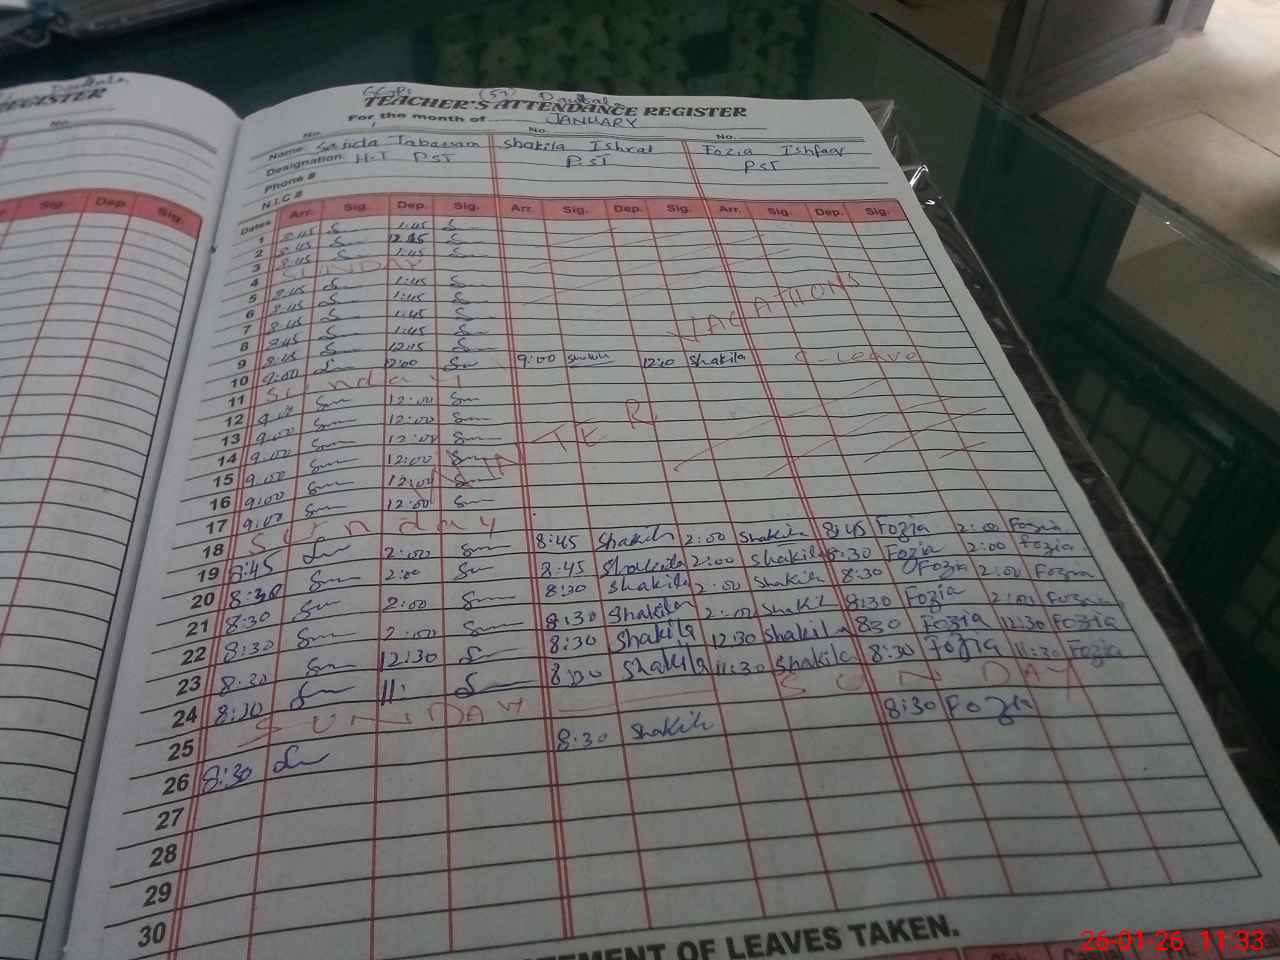 REGISTER
No.
Sig. Dep. Sig.
GGPS (59)
TEACHER'S ATTENDANCE REGISTER
For the month of JANUARY
No. No. No.
Name: Tabassum Shakila Ishrat Fozia Ishfaq
Designation: H.T PST PST PST
Phone #
N.I.C #
Dates Arr. Sig. Dep. Sig. Arr. Sig. Dep. Sig. Arr. Sig. Dep. Sig.
1 8:45 1:45
2 8:45 12:45
3 8:45 1:45
4 SUNDAY
5 8:45 1:45
6 8:45 1:45
7 8:45 1:45
8 8:45 1:45 VACATIONS
9 8:45 12:45
10 9:00 12:00 9:00 Shakila 12:00 Shakila C-Leave
11 Sunday
12 9:00 12:00
13 9:00 12:00
14 9:00 12:00 WINTER
15 9:00 12:00
16 9:00 12:00
17 9:00 12:00
18 Sunday
19 8:45 2:00 8:45 Shakila 2:00 Shakila 8:45 Fozia 2:00 Fozia
20 8:30 2:00 8:45 Shakila 2:00 Shakila 8:30 Fozia 2:00 Fozia
21 8:30 2:00 8:30 Shakila 2:00 Shakila 8:30 Fozia 2:00 Fozia
22 8:30 2:00 8:30 Shakila 2:00 Shakila 8:30 Fozia 2:00 Fozia
23 8:30 12:30 8:30 Shakila 12:30 Shakila 8:30 Fozia 12:30 Fozia
24 8:30 11: 8:30 Shakila 11:30 Shakila 8:30 Fozia 11:30 Fozia
25 SUNDAY SUNDAY
26 8:30 8:30 Shakila 8:30 Fozia
27
28
29
30
STATEMENT OF LEAVES TAKEN.
26-01-26 11:33